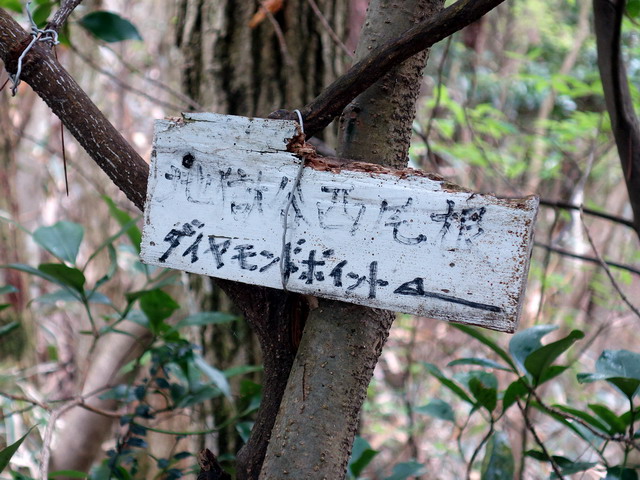 地獄谷西尾根
ダイヤモンドポイント ←